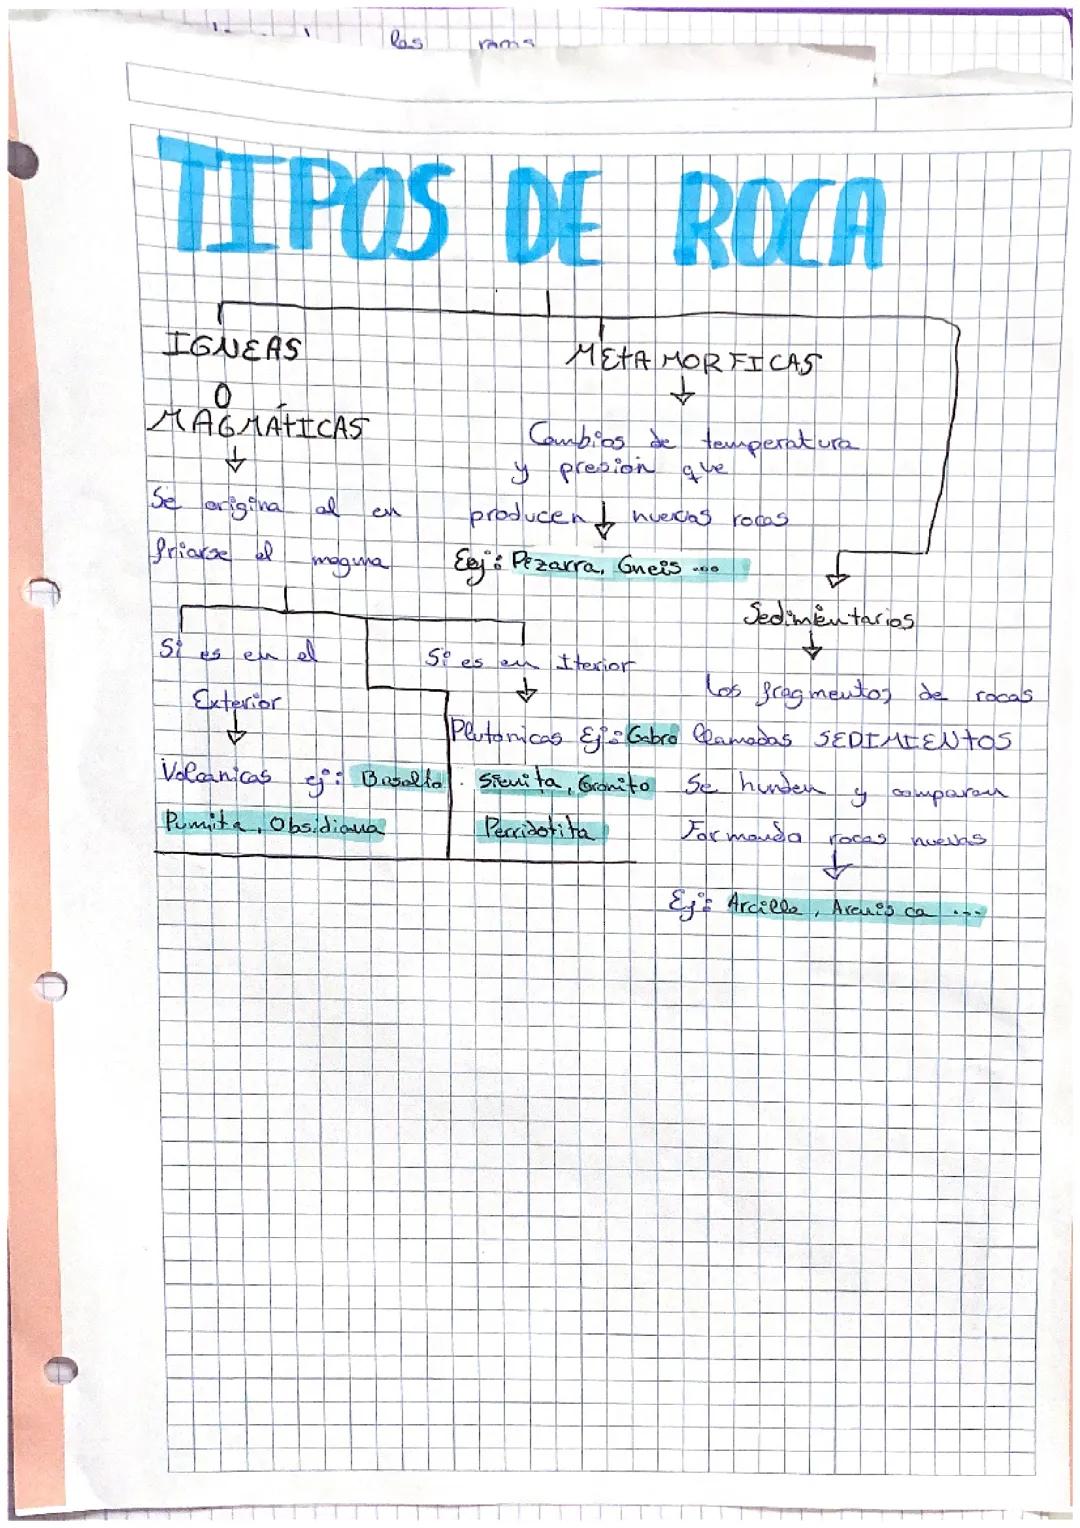 las
TIPOS DE ROCA
IGNEAS
O
MAGMÁTICAS
Se origina al en
friarse el magma
METAMORFICAS
Cambios de temperatura
y presion que
producen nuevas rocas
Eej: Pezarra, Gneis ...
Si es en el
Exterior
Volcanicas ej: Basalto
Pumita, Obsidiana
Si es en Iterior
Plutonicas Ej: Gabro
Sienita, Granito
Perridotita
Sedimentarios
Los fragmentos de rocas
llamadas SEDIMIENTOS
Se hunden y comparan
Formando rocas nuevas
Ej: Arcilla, Arenisca ...